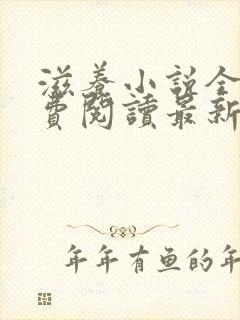 滋养小说全
费阅讀最新
年年有鱼的年